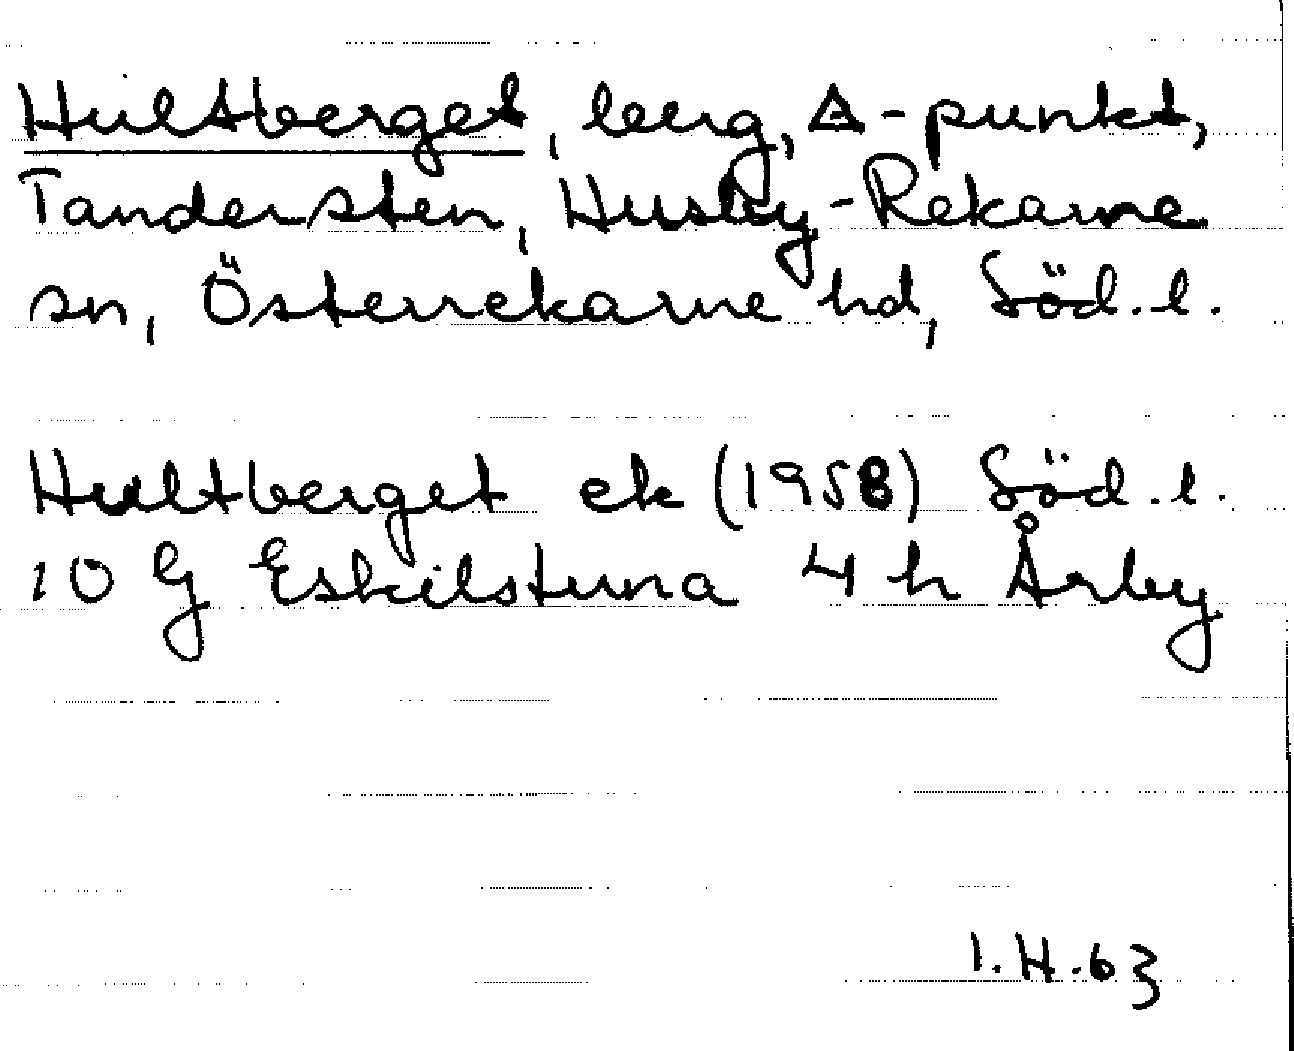 Hultberget, berg, △-punkt,
Tandersten, Husby-Rekarne
sn, Österrekarne hd, Söd.l.
Hultberget ek (1958) Söd.l.
10 G Eskilstuna 4 h Årby
I.H.63